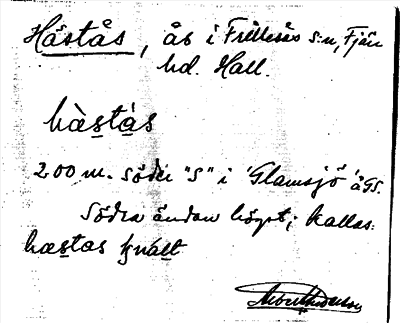 Hästås, ås i Frillesås s:n, Fjäre
hd. Hall.
hæ̀stås
200 m. söder "S" i 'Glamsjö' åGS.
Södra ändan högst; kallas:
hæstas knalt